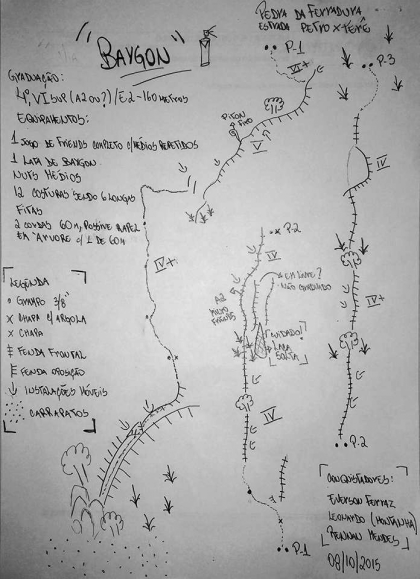 "BAYGON"
PEDRA DA FERRADURA
ESTRADA PETRO X TERÊ
GRADUAÇÃO:
4º, VI SUP (A2 OU?)/E2-160 METROS
EQUIPAMENTOS:
1 JOGO DE FRIENDS COMPLETO C/MÉDIOS REPETIDOS
1 LATA DE BAYGON
NUTS MÉDIOS
12 COSTURAS SENDO 6 LONGAS
FITAS
2 CORDAS 60M, POSSIVE RAPEL
EM ÁRVORE C/ 1 DE 60M
LEGENDA
GRAMPO 3/8"
CHAPA C/ ARGOLA
CHAPA
FENDA FRONTAL
FENDA OPOSIÇÃO
INSTALAÇÕES MÓVEIS
CARRAPATOS
IV+
P-1
VI+
PITON
FIXO
V
P-2
IV
EM LIVRE?
NÃO CONDUZIDO
A2
MICRO
FRIENDS
CUIDADO!
LACA
SOLTA
IV
P-1
P-3
IV
IV+
P-2
CONQUISTADORES:
EVERSON FERRAZ
LEONARDO (MONTANHA)
RENNAN MENDES
08/10/2015